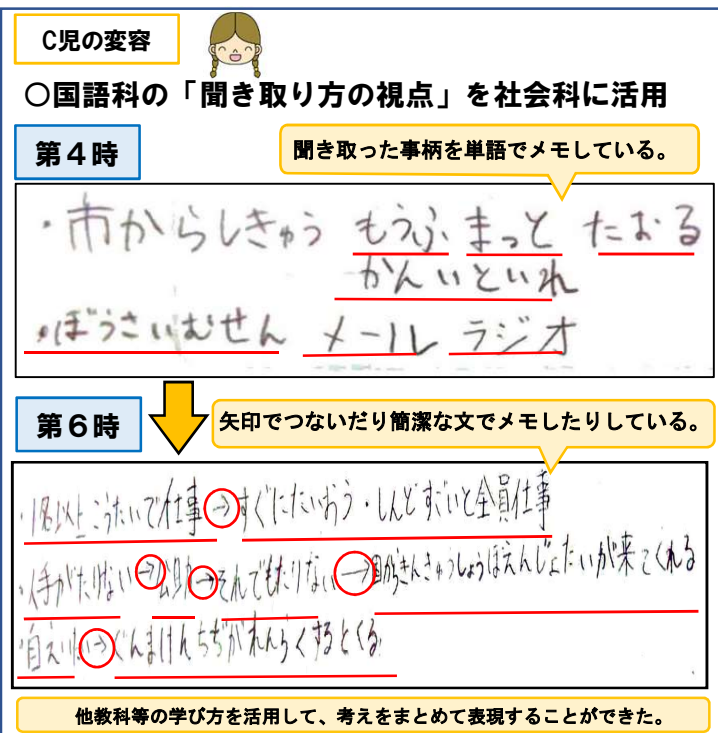 C児の変容
〇国語科の「聞き取り方の視点」を社会科に活用
第4時
聞き取った事柄を単語でメモしている。
・市からしきゅう もうふ まっと たおる
かんいといれ
・ぼうさいむせん メール ラジオ
第6時
矢印でつないだり簡潔な文でメモしたりしている。
・1名以上こうたいで仕事→すぐにたいおう・しんどすごいと全員仕事
・人手がたりない→公助→それでもたりない→国からきんきゅうしょうぼうえんじょたいが来てくれる
・自えいたい→ぐんまけんちじがれんらくするとくる
他教科等の学び方を活用して、考えをまとめて表現することができた。